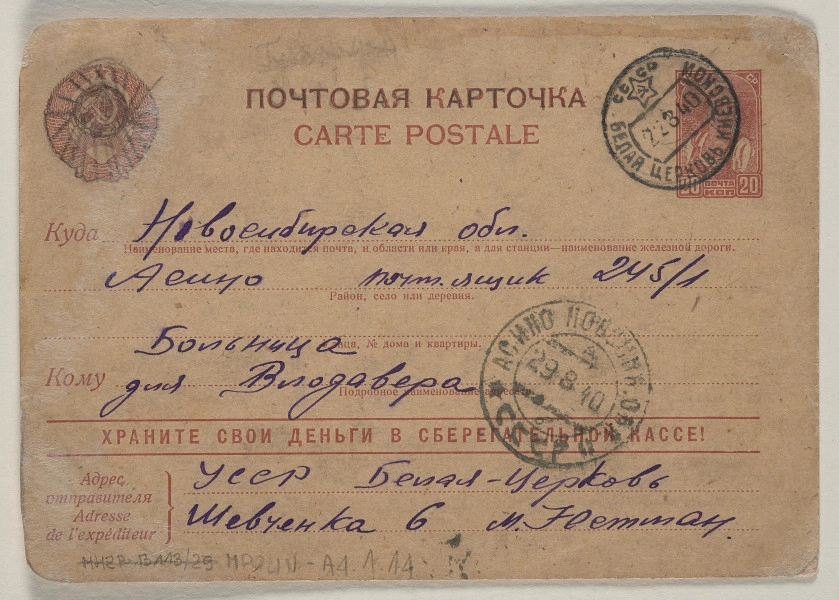 ПОЧТОВАЯ КАРТОЧКА
CARTE POSTALE
СССР КИЕВСКОЙ
БЕЛАЯ ЦЕРКОВЬ
22 8 40
20 ПОЧТА 20
КОП
Куда Новосибирская обл.
Наименование места, где находится почта, и области или края, а для станции—наименование железной дороги.
Асино почт. ящик 245/1
Район, село или деревня.
Больница
Улица, № дома и квартиры.
Кому для Влодавера
Подробное наименование адресата
АСИНО НОВОСИБ. ОБЛ.
29 8 40
СССР
ХРАНИТЕ СВОИ ДЕНЬГИ В СБЕРЕГАТЕЛЬНОЙ КАССЕ!
Адрес отправителя
Adresse de l'expéditeur
УССР Белая-Церковь
Шевченка 6 М.